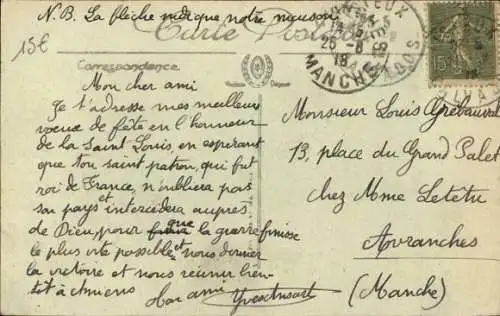 N.B. La flèche indique notre maison
15€
Carte Postale
Correspondance
25-8
18
MANCHE
15c
Mon cher ami
Je t'adresse mes meilleurs
voeux de fête en l'honneur
de la Saint Louis, en espérant
que ton saint patron, qui fut
roi de France, n'oubliera pas
son pays et intercèdera auprès
de Dieu, pour que la guerre finisse
le plus vite possible et nous donner
la victoire et nous réunir bien-
tôt à Amiens
Ton ami
Monsieur Louis
13, place du Grand Palet
chez Mme Letetu
Avranches
(Manche)